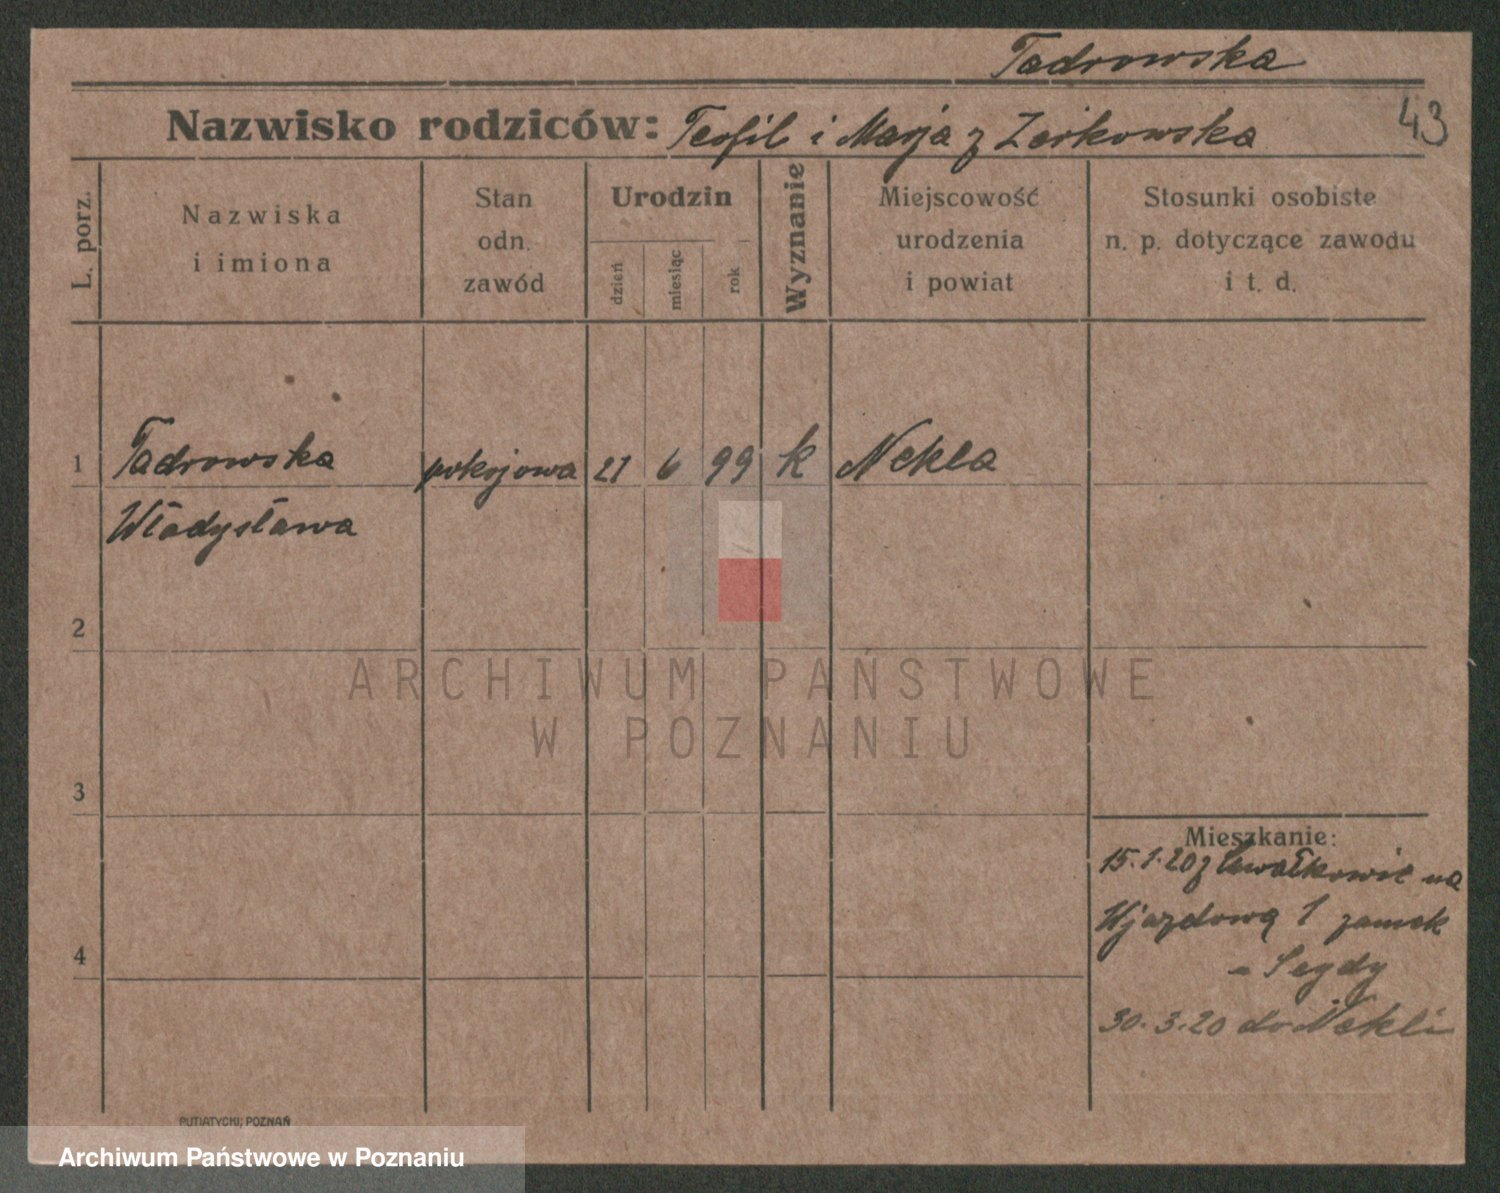 Tadrowska
Nazwisko rodziców: Teofil i Marja z Zerkowska
43
L. porz.
Nazwiska
i imiona
Stan
odn.
zawód
Urodzin
dzień
miesiąc
rok
Wyznanie
Miejscowość
urodzenia
i powiat
Stosunki osobiste
n. p. dotyczące zawodu
i t. d.
1
Tadrowska
pokojowa
21
6
99
k
Nekla
Władysława
2
3
4
Mieszkanie:
15.1.20 z na
Wjazdową 1 zamek
30.3.20 do Nekli
PUTIATYCKI; POZNAŃ
ARCHIWUM PAŃSTWOWE
W POZNANIU
Archiwum Państwowe w Poznaniu